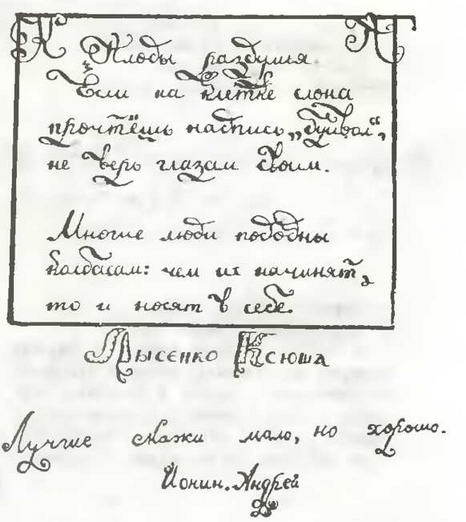 Плоды раздумья.
Если на клетке слона
прочтёшь надпись „буйвол",
не верь глазам своим.
Многие люди подобны
колбасам: чем их начинят,
то и носят в себе.
Лысенко Ксюша
Лучше скажи мало, но хорошо.
Ионин Андрей